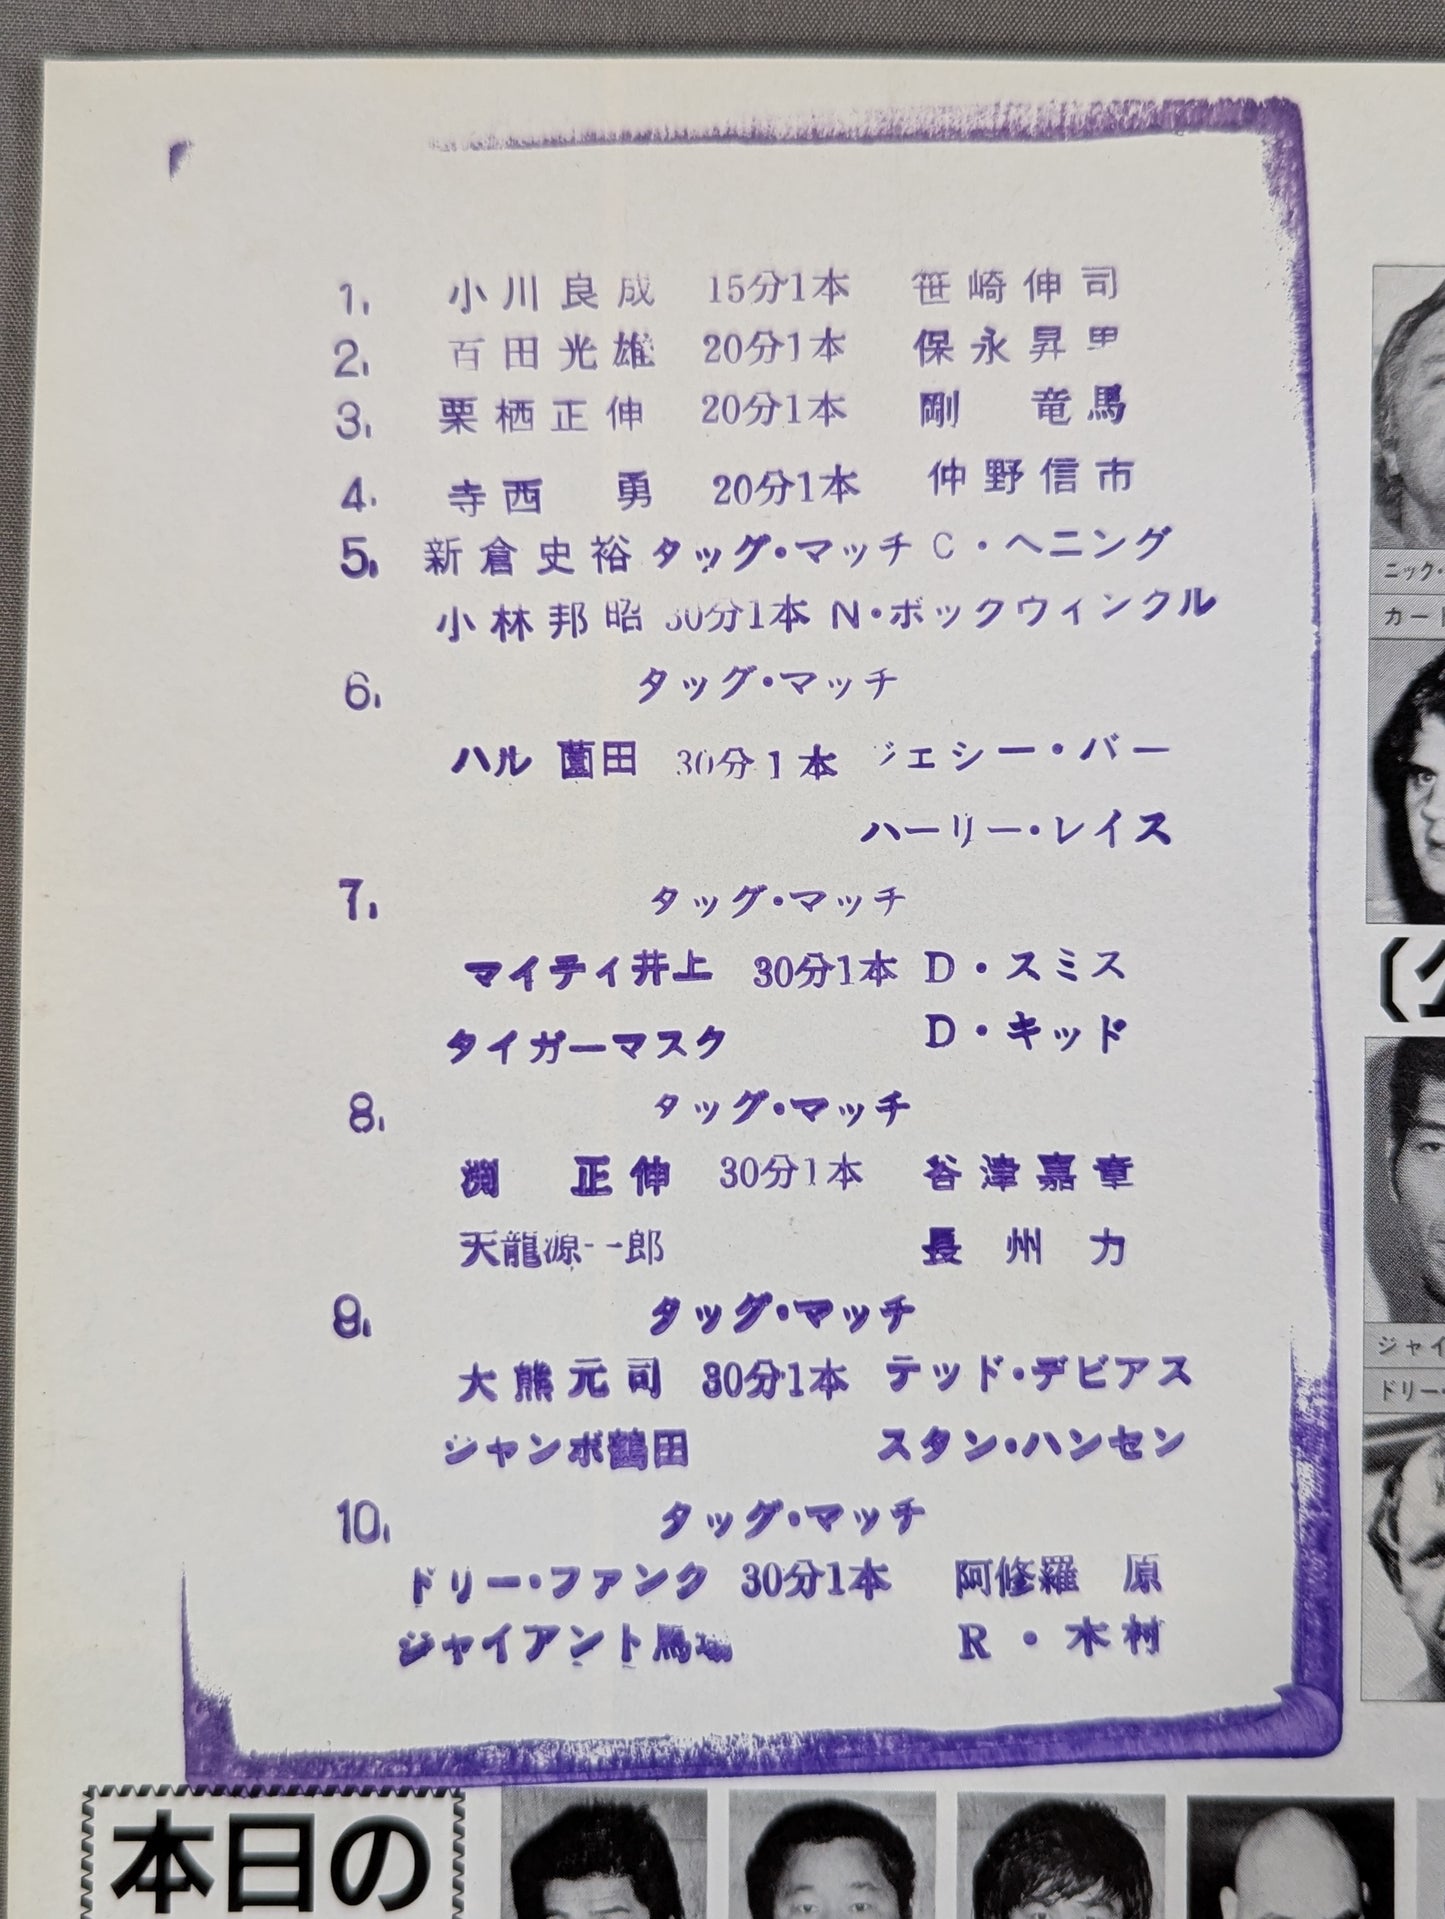 1. 小川良成 15分1本 笹崎伸司
2. 百田光雄 20分1本 保永昇男
3. 栗栖正伸 20分1本 剛 竜馬
4. 寺西 勇 20分1本 仲野信市
5. 新倉史裕 タッグ・マッチ C・ヘニング
小林邦昭 30分1本 N・ボックウィンクル
6. タッグ・マッチ
ハル 薗田 30分1本 ジェシー・バー
ハーリー・レイス
7. タッグ・マッチ
マイティ井上 30分1本 D・スミス
タイガーマスク D・キッド
8. タッグ・マッチ
渕 正伸 30分1本 谷津嘉章
天龍源一郎 長州力
9. タッグ・マッチ
大熊元司 30分1本 テッド・デビアス
ジャンボ鶴田 スタン・ハンセン
10. タッグ・マッチ
ドリー・ファンク 30分1本 阿修羅 原
ジャイアント馬場 R・木村
ニック・
カー
ジャイ
ドリー・
本日の